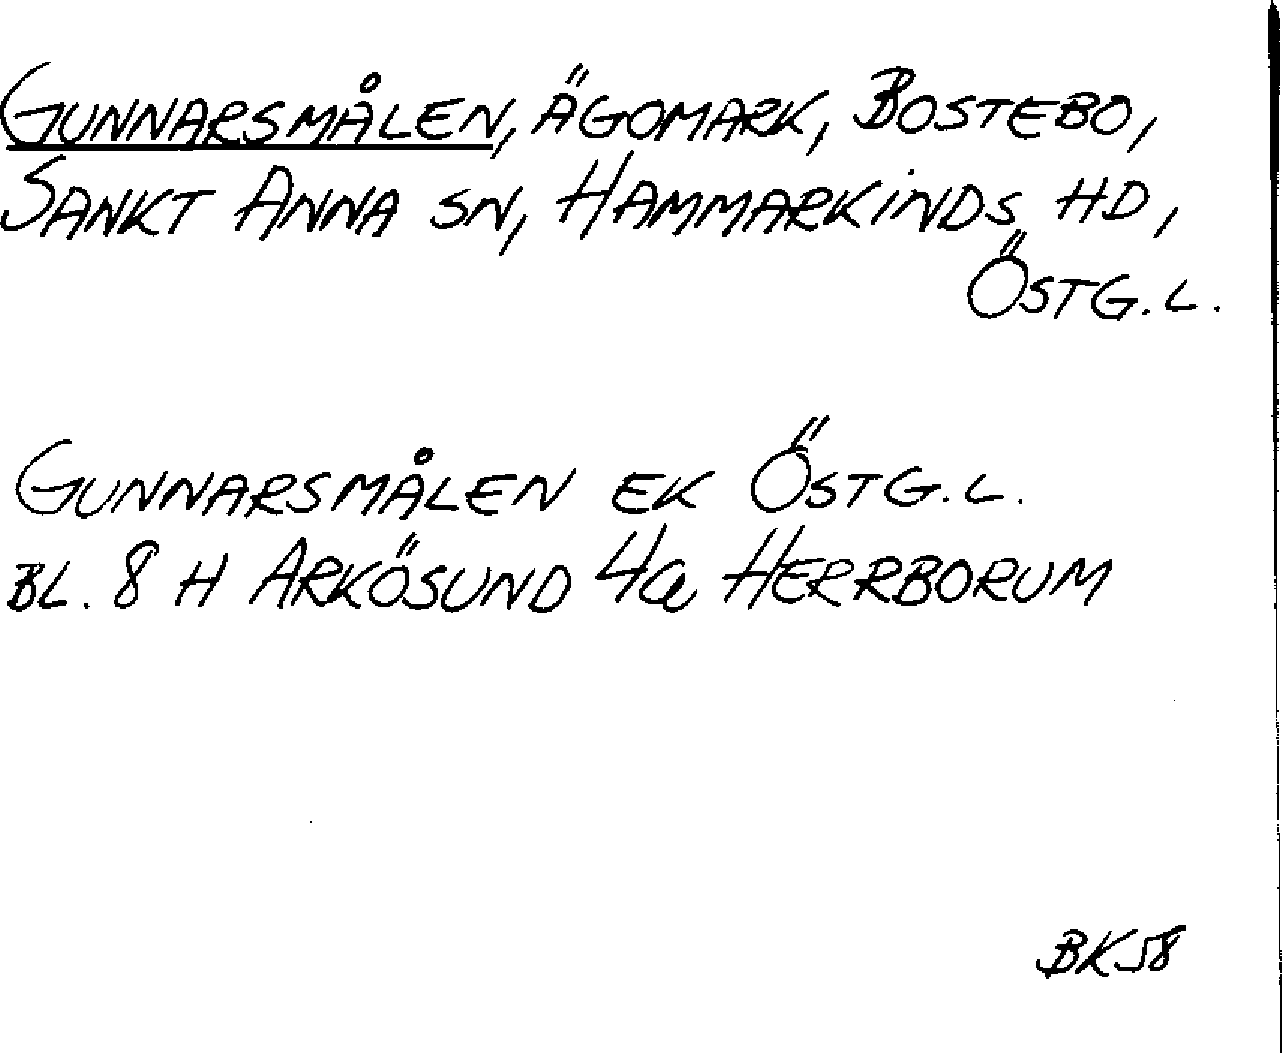 GUNNARSMÅLEN, ÄGOMARK, BOSTEBO,
SANKT ANNA SN, HAMMARKINDS HD,
ÖSTG.L.
GUNNARSMÅLEN EK ÖSTG.L.
BL. 8 H ARKÖSUND 4a HERRBORUM
BK58